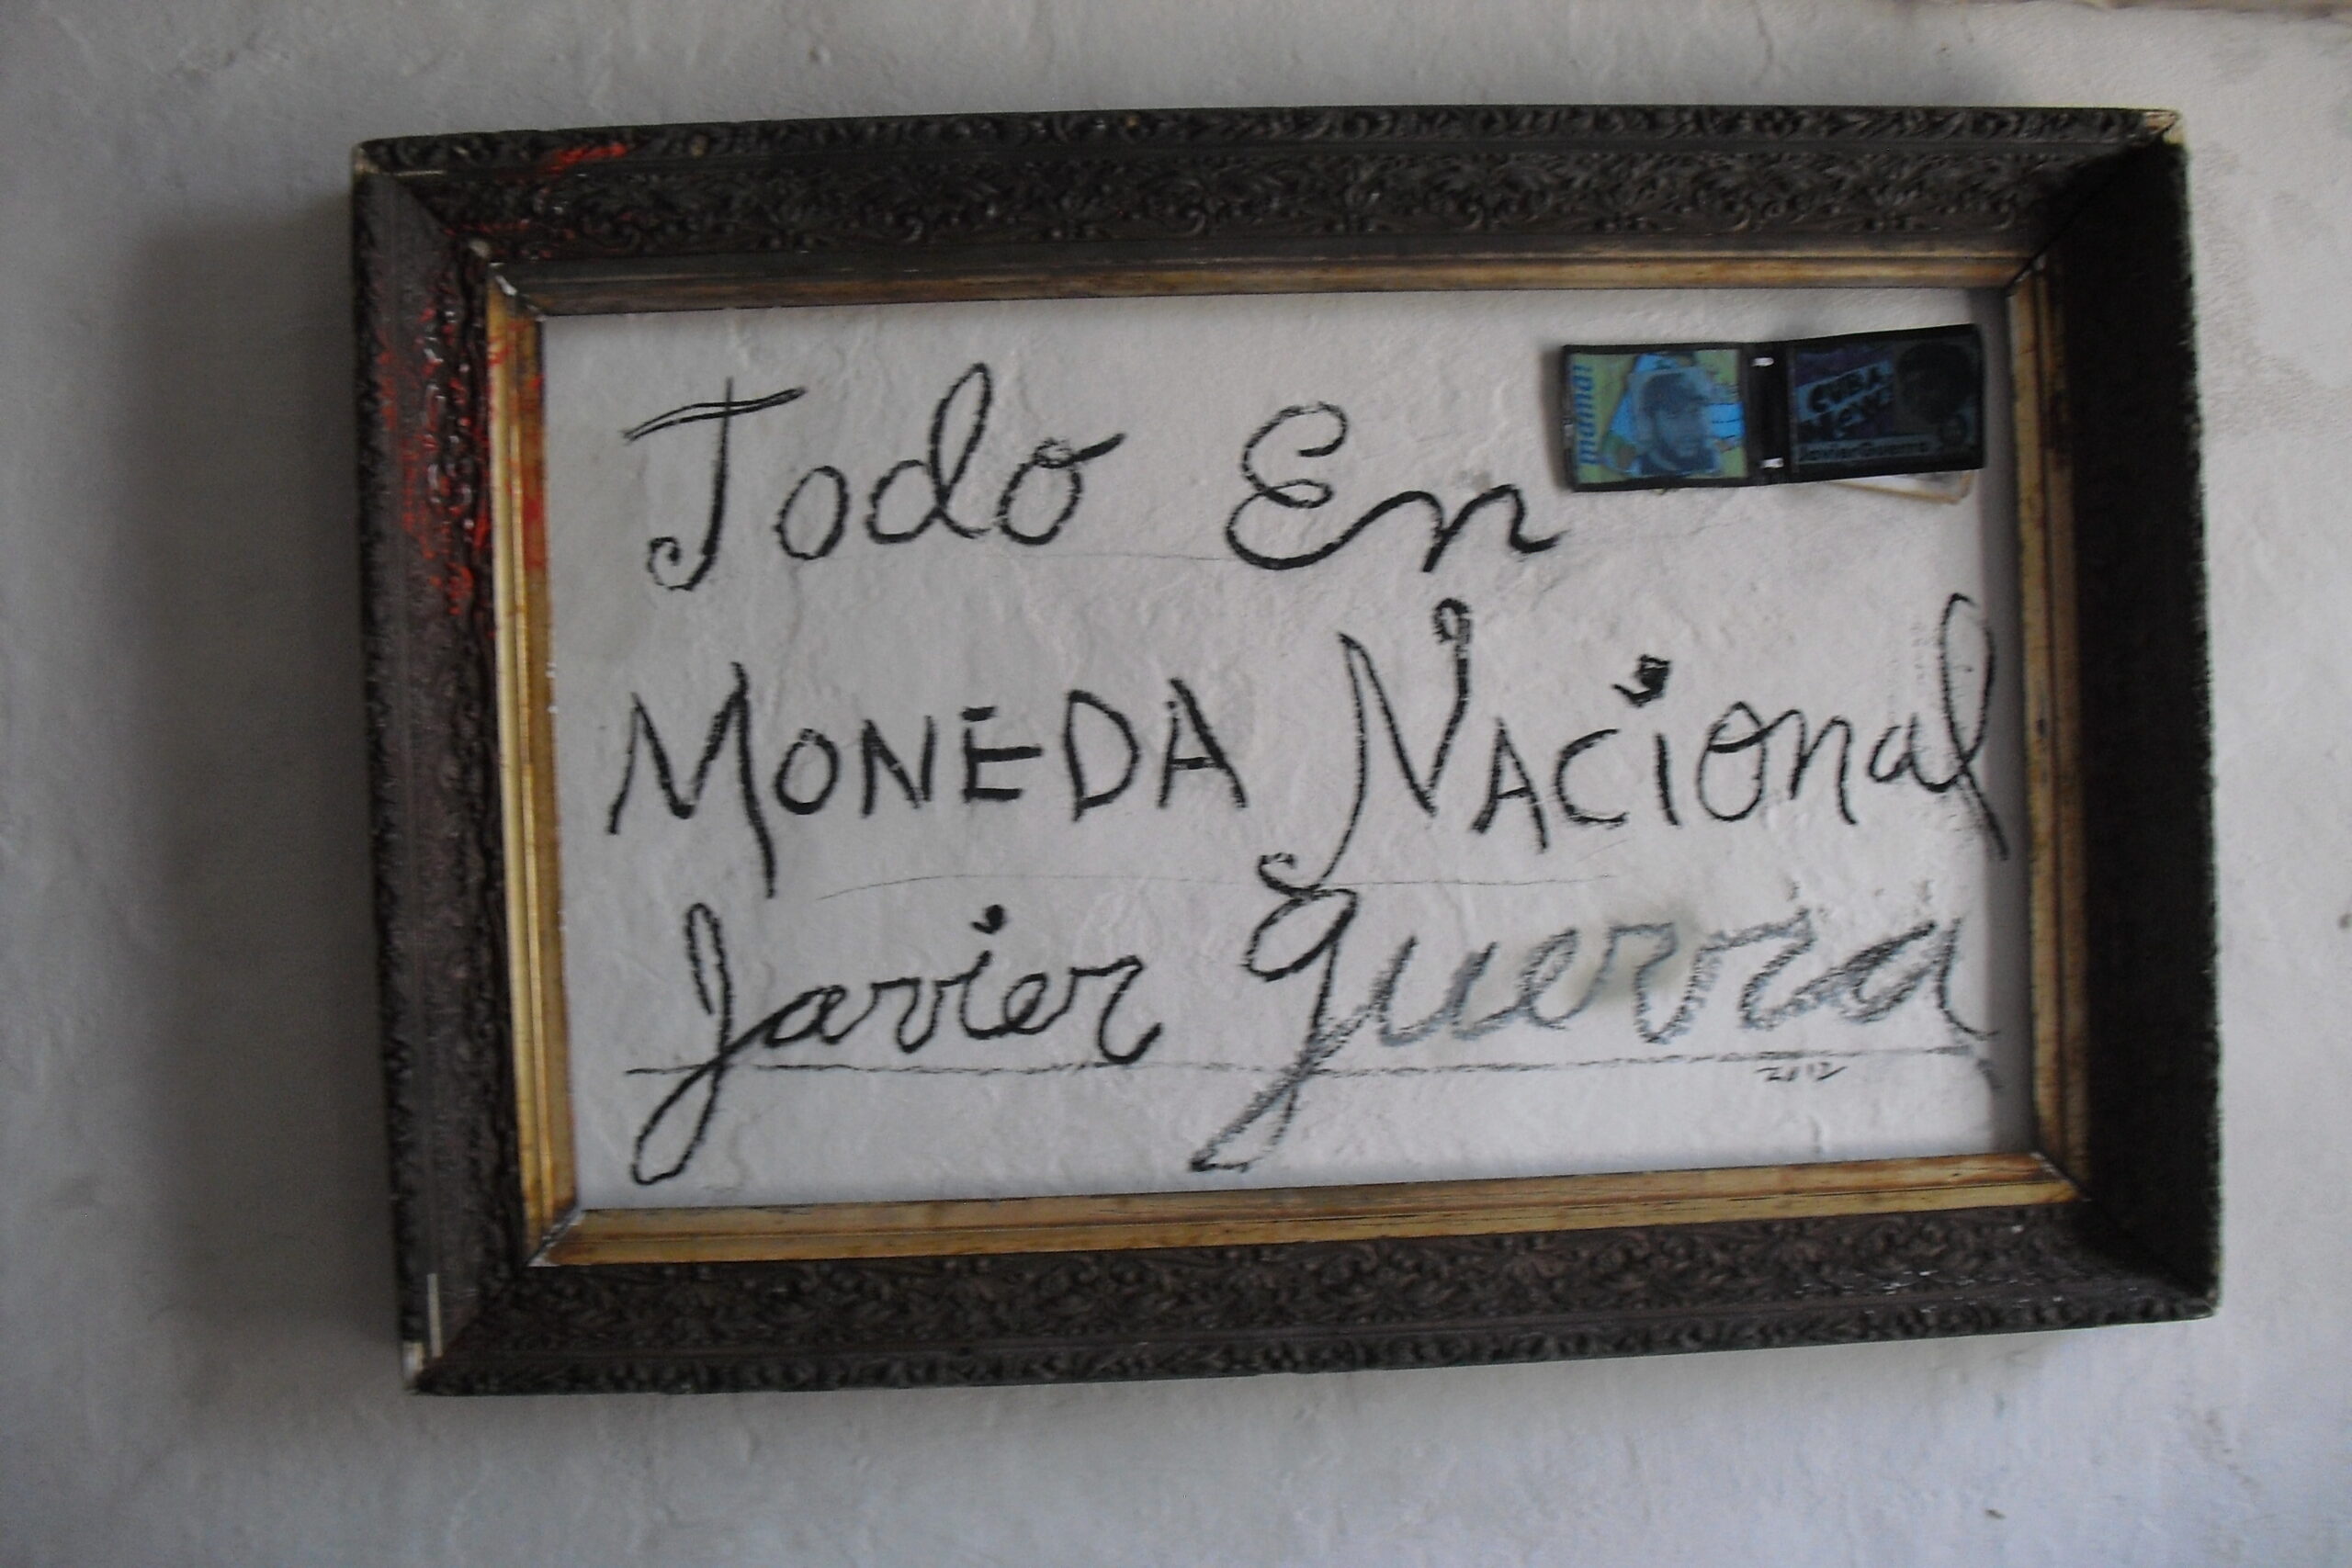 Todo En
MONEDA NACional
Javier Guerra
2012
maná!
CUBA
Javier Guerra